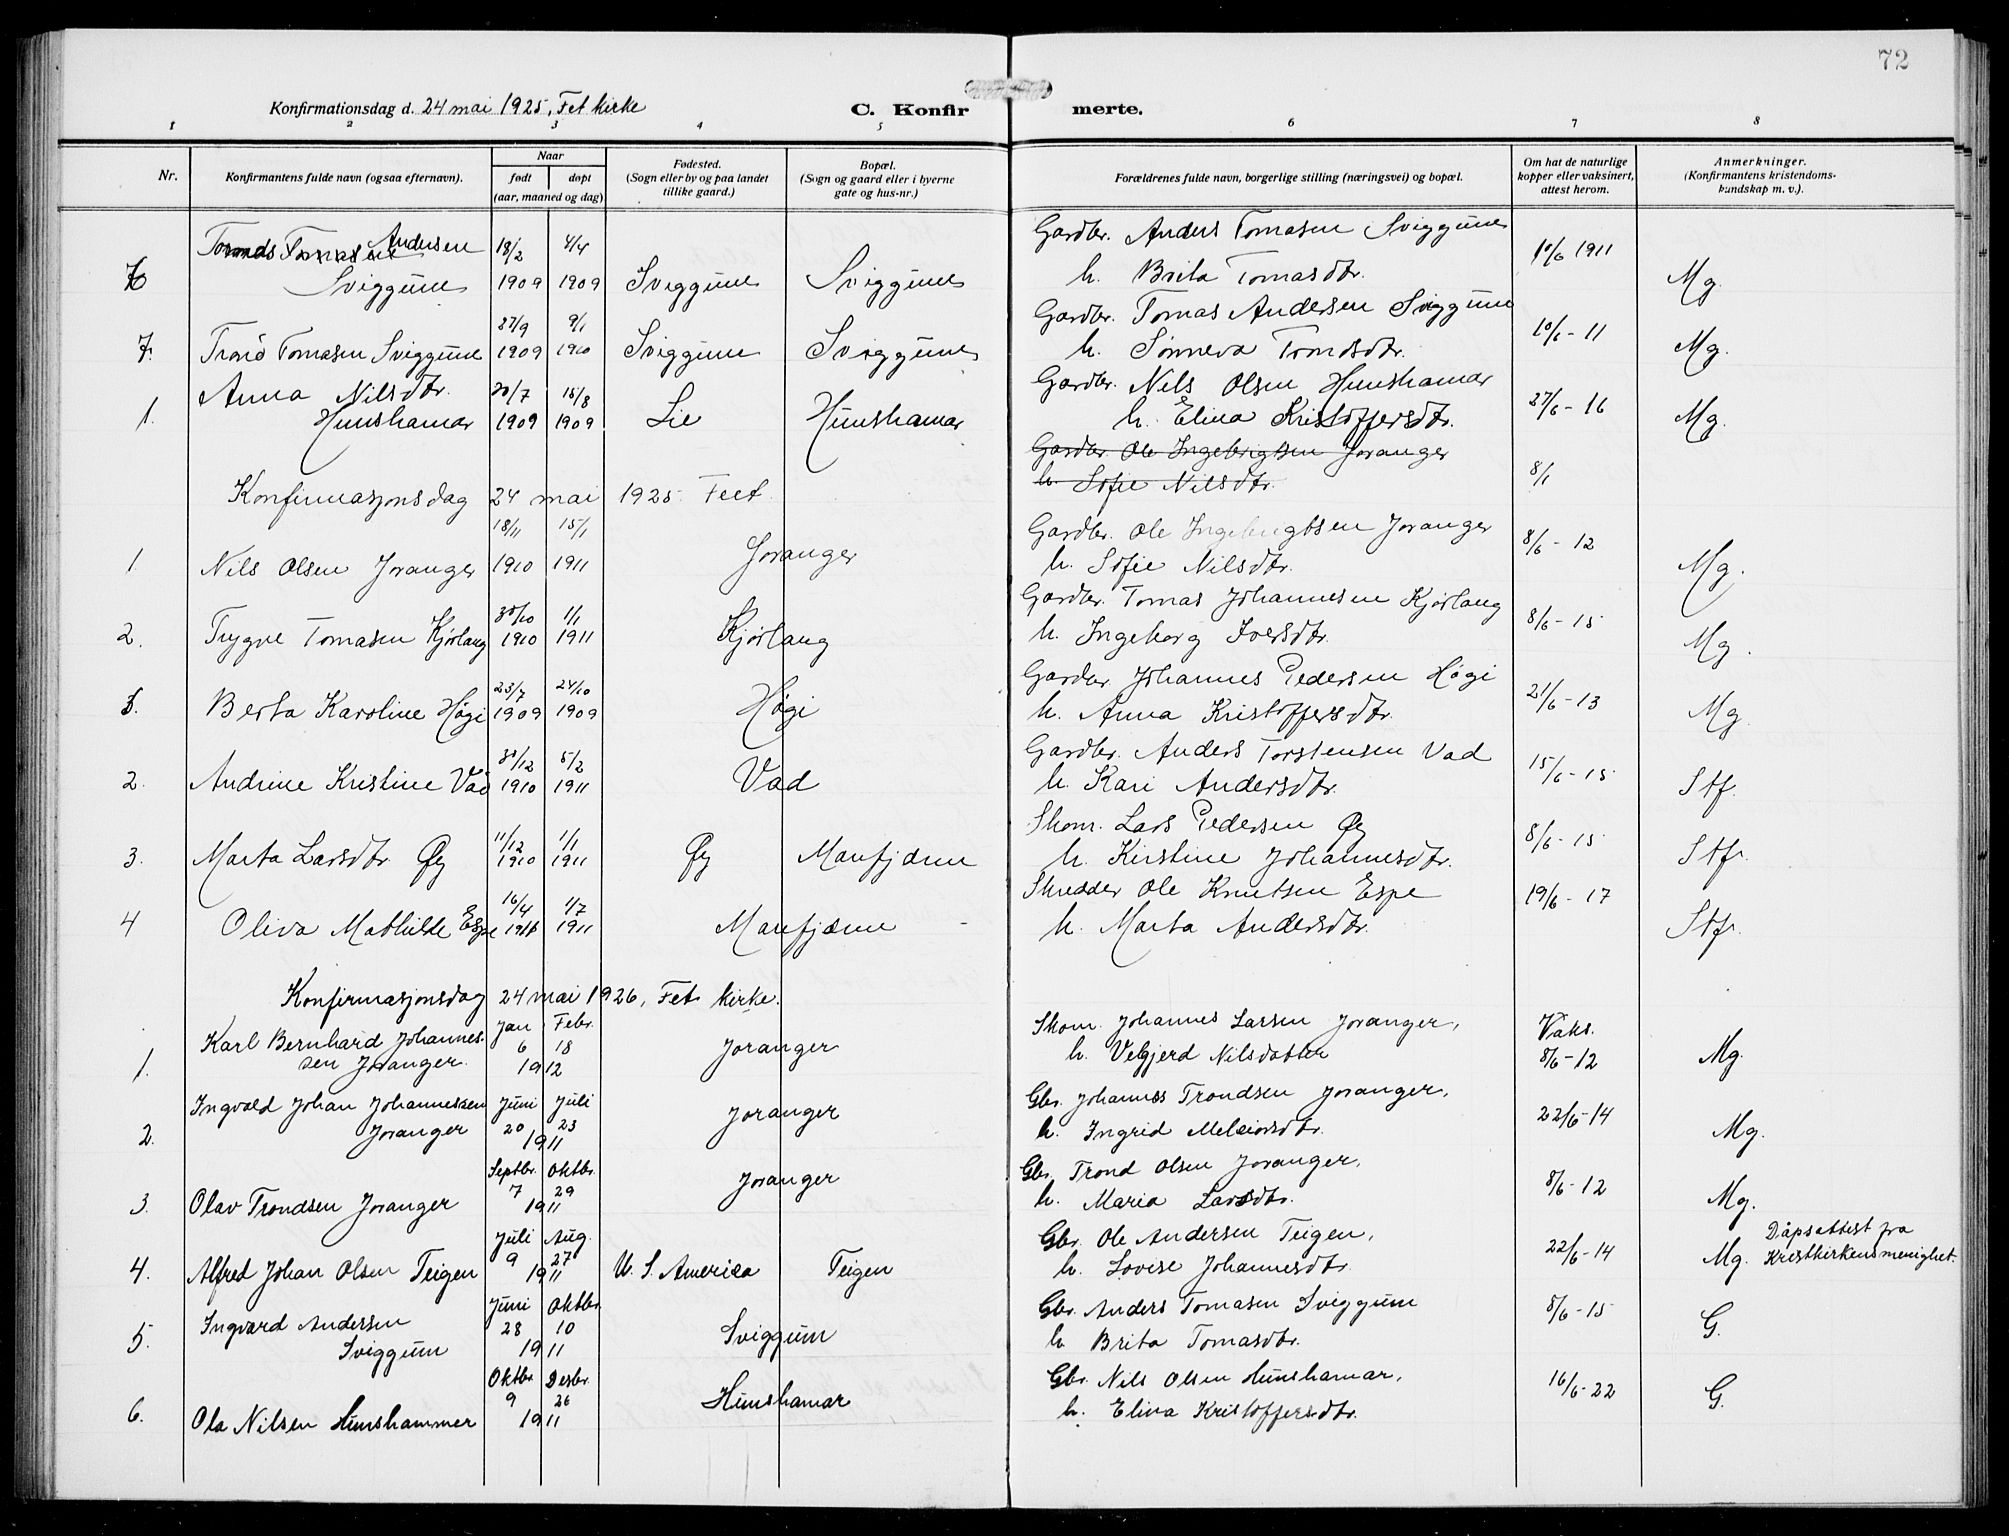 72
Konfirmationsdag d. 24 mai 1925, Fet kirke
C. Konfir merte.
1 2 3 4 5 6 7 8
Nr.
Konfirmantens fulde navn (ogsaa efternavn).
Naar
født døpt
(aar, maaned og dag)
Fødested.
(Sogn eller by og paa landet
tillike gaard.)
Bopæl.
(Sogn og gaard eller i byerne
gate og hus-nr.)
Forældrenes fulde navn, borgerlige stilling (næringsvei) og bopæl.
Om hat de naturlige
kopper eller vaksinert,
attest herom.
Anmerkninger.
(Konfirmantens kristendoms-
kundskap m. v.).
Andersen 18/2 4/4 Gardbr. Anders Tomasen Sviggum 10/6 1911
6 Sviggum 1909 1909 Sviggum Sviggum h. Brita Tomasdtr. Mg.
27/9 9/1 Gardbr. Tomas Andersen Sviggum
7. Trond Tomasen Sviggum 1909 1910 Sviggum Sviggum h. Sønneva Trondsdtr. 10/6 - 11 Mg.
Anna Nilsdtr. 20/7 15/8 Gardbr. Nils Olsen Hunshamar
1. Hunshamar 1909 1909 Lie Hunshamar h. Elina Kristoffersdtr. 27/6 - 16 Mg.
Gardbr. Ole Ingebrigtsen Joranger
h. Sofie Nilsdtr. 8/1
Konfirmasjonsdag 24 mai 1925. Feet
18/11 15/1 Gardbr. Ole Ingebrigtsen Joranger
1 Nils Olsen Joranger 1910 1911 Joranger h. Sofie Nilsdtr. 8/6 - 12 Mg.
30/10 1/1 Gardbr. Tomas Johannesen Kjørlaug
2. Trygve Tomasen Kjørlaug 1910 1911 Kjørlaug h. Ingeborg Iversdtr. 8/6 - 15 Mg.
23/7 24/10 Gardbr. Johannes Pedersen Høgi
1. Berta Karoline Høgi 1909 1909 Høgi h. Anna Kristoffersdtr. 21/6 - 13 Mg.
30/12 5/2 Gardbr. Anders Torstensen Vad
2. Andrine Kristine Vad 1910 1911 Vad h. Kari Andersdtr. 15/6 - 15 Stf.
11/12 1/1 Skom. Lars Pedersen Øy
3. Marta Larsdtr Øy 1910 1911 Øy Marifjæren h. Kirstine Johannesdtr. 8/6 - 15 Stf.
16/4 1/7 Skredder Ole Knutsen Espe
4 Oliva Mathilde Espe 1911 1911 Marifjæren h. Marta Andersdtr. 19/6 - 17 Stf.
Konfirmasjonsdag 24 mai 1926, Fet kirke.
Karl Bernhard Johannes- Jan Febr. Skom. Johannes Larsen Joranger, Vaks.
1. sen Joranger. 6 18 1912 Joranger h. Velgjerd Nilsdatter 8/6 - 12 Mg.
Ingvald Johan Johannessen Juni Juli Gbr. Johannes Trondsen Joranger,
2. Joranger 20 23 1911 Joranger h. Ingrid Melkiorsdtr. 22/6 - 14 Mg.
Septbr. Oktbr. Gbr. Trond Olsen Joranger,
3. Olav Trondsen Joranger 7 29 1911 Joranger h. Maria Larsdtr. 8/6 - 12 Mg.
Juli Aug. Gbr. Ole Andersen Teigen, Dåpsattest fra
4. Alfred Johan Olsen Teigen 9 27 1911 U. S. America Teigen h. Lovise Johannesdtr 22/6 - 14 Mg. Kristkirkens menighet.
Ingvard Andersen Juni Oktbr. Gbr. Anders Tomasen Sviggum
5. Sviggum 28 10 1911 Sviggum h Brita Tomasdtr. 8/6 - 15 G.
Oktbr Desbr. Gbr. Nils Olsen Hunshamar,
6. Ola Nilsen Hunshammer 9 26 1911 Hunshamar h. Elina Kristoffersdtr. 16/6 - 22 G.